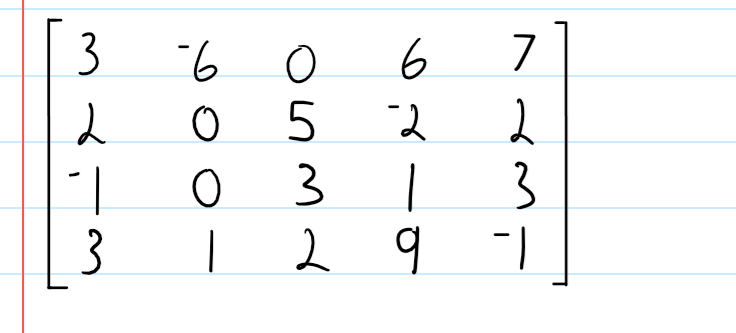 3 -6 0 6 7
2 0 5 -2 2
-1 0 3 1 3
3 1 2 9 -1